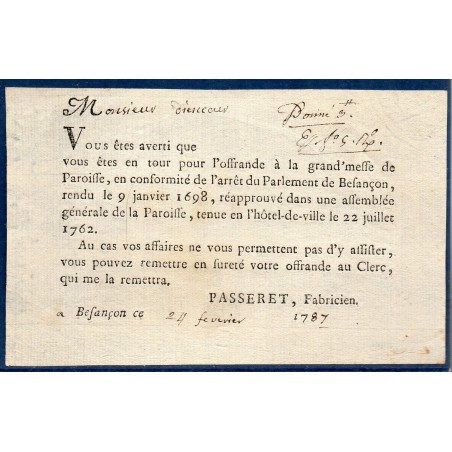 Monsieur
Donné 3
Vous êtes averti que
vous êtes en tour pour l'offrande à la grand'messe de
Paroisse, en conformité de l'arrêt du Parlement de Besançon,
rendu le 9 janvier 1698, réapprouvé dans une assemblée
générale de la Paroisse, tenue en l'hôtel-de-ville le 22 juillet
1762.
Au cas vos affaires ne vous permettent pas d'y assister,
vous pouvez remettre en sureté votre offrande au Clerc,
qui me la remettra.
PASSERET, Fabricien.
a Besançon ce 24 fevrier 1787